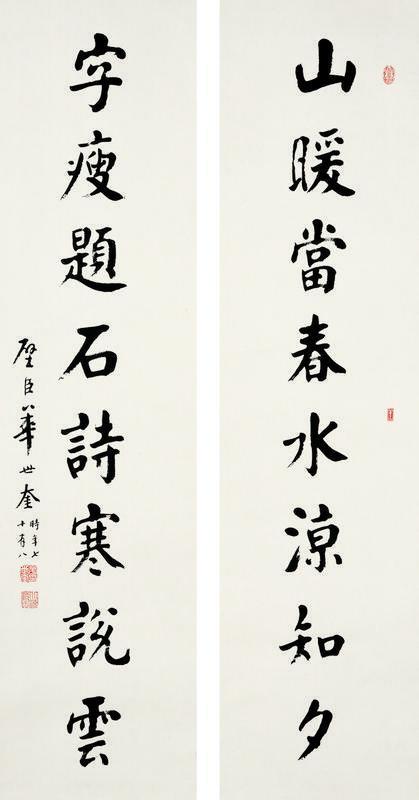 山暖當春水涼知夕
字瘦題石詩寒說雲
璧臣華世奎
時年七
十有八